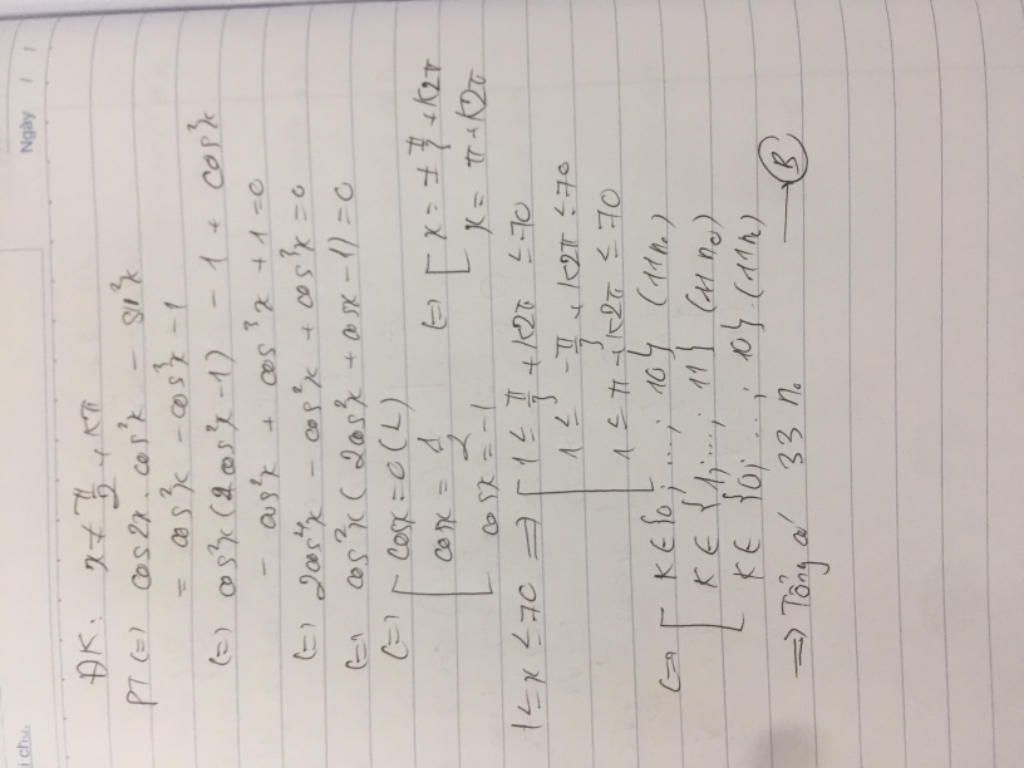 i chú.
Ngày
ĐK: x ≠ π/2 + kπ
PT (=) cos2x.cos²x - sin²x
= cos³x - cos²x - 1
(=) cos²x(2cos²x-1) - 1 + cos²x
- cos²x + cos³x + 1 = 0
(=) 2cos⁴x - cos²x + cos³x = 0
(=) cos²x(2cos²x + cosx - 1) = 0
(=) [ cosx = 0 (L)
cosx = 1/2
cosx = -1
(=) [ x = ± π/3 + k2π
x = π + k2π
1 ≤ x ≤ 70 => [ 1 ≤ π/3 + k2π ≤ 70
1 ≤ -π/3 + k2π ≤ 70
1 ≤ π + k2π ≤ 70
(=) [ k ∈ {0;...; 10} (11 no)
k ∈ {1;...; 11} (11 no)
k ∈ {0;...; 10} (11 n)
=> Tổng có 33 no → B